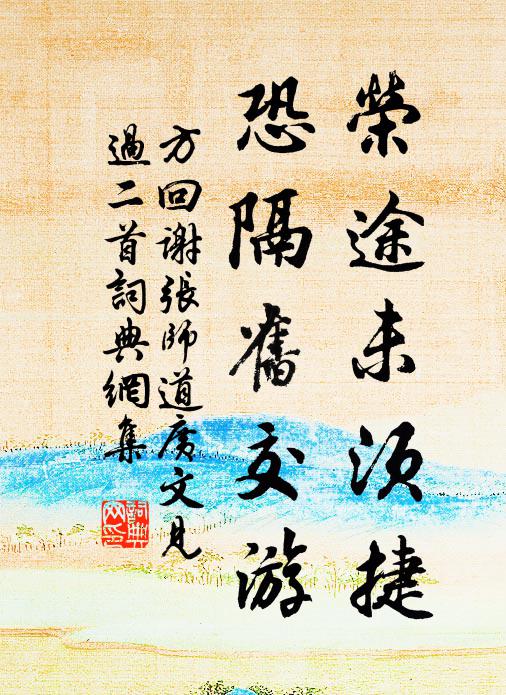 榮途未須捷
恐隔舊交游
方回谢張師道廣文見
過二首詞典網集
詞典網印